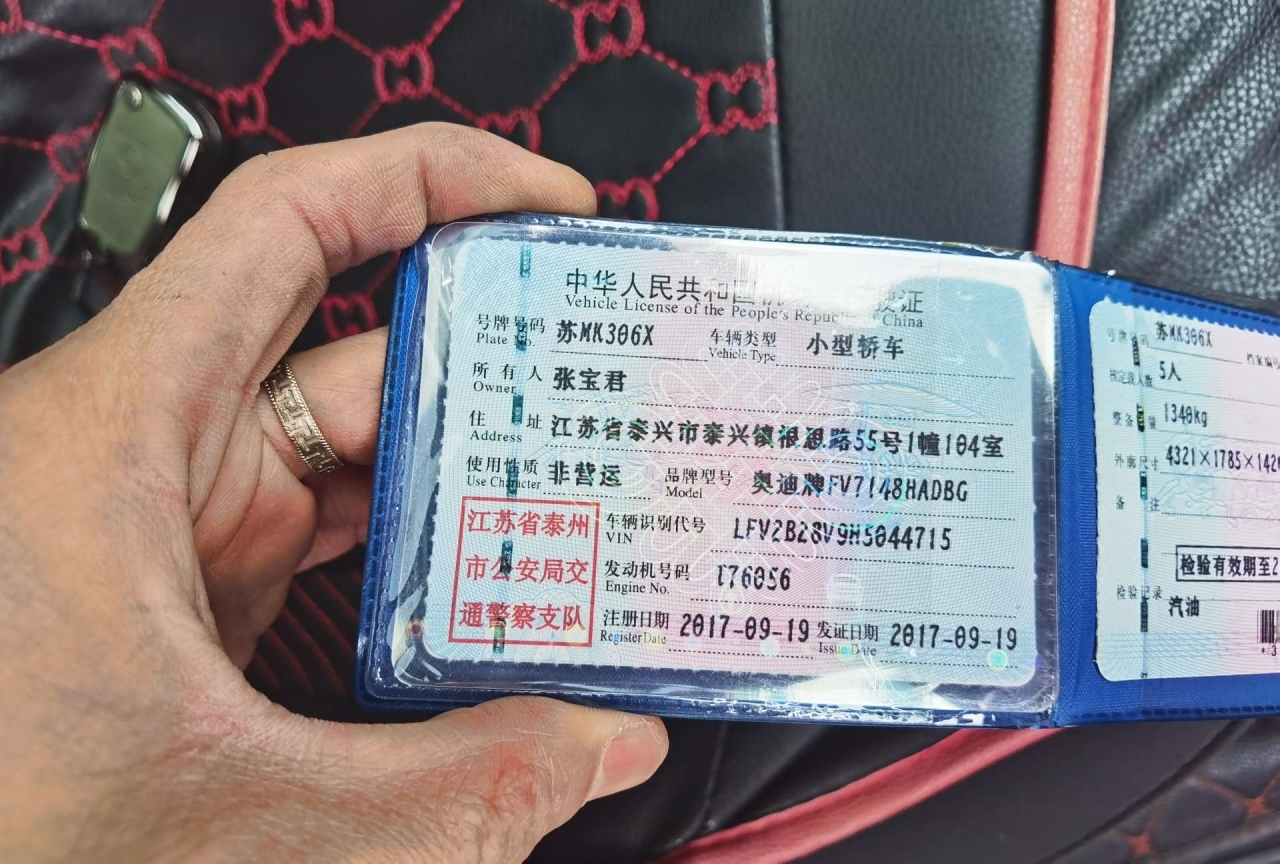 中华人民共和国
Vehicle License of the People's Republic of China
号牌号码 苏MK306X 车辆类型 小型轿车
Plate No. Vehicle Type
所有人 张宝君
Owner
住址 江苏省泰兴市泰兴镇根思路55号1幢104室
Address
使用性质 非营运 品牌型号 奥迪牌FV7148HADBG
Use Character Model
江苏省泰州
市公安局交
通警察支队
车辆识别代号 LFV2B28V9H5044715
VIN
发动机号码 T76056
Engine No.
注册日期 2017-09-19 发证日期 2017-09-19
Register Date Issue Date
号牌号码 苏MK306X 档案编号
核定载人数 5人
整备质量 1340kg
外廓尺寸 4321×1785×142
备注
检验有效期至2
检验记录
汽油